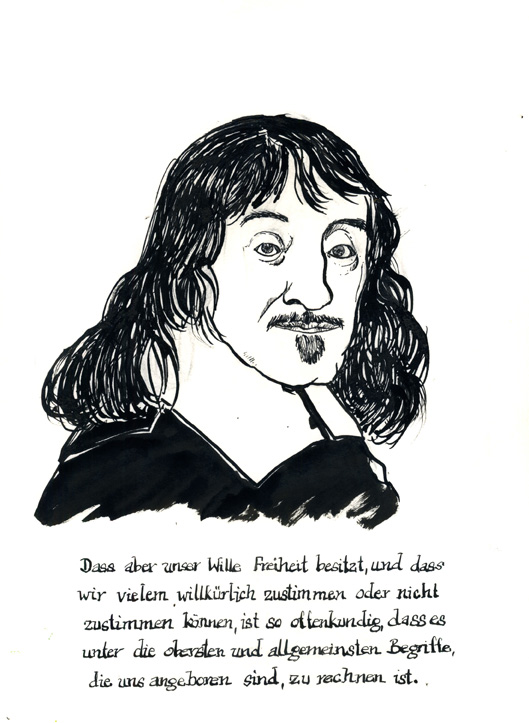 Dass aber unser Wille Freiheit besitzt, und dass
wir vielem willkürlich zustimmen oder nicht
zustimmen können, ist so offenkundig, dass es
unter die obersten und allgemeinsten Begriffe,
die uns angeboren sind, zu rechnen ist.